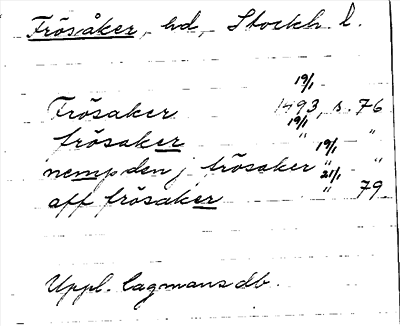 Frösåker, hd, Stockh. l.
19/1
Frösaker 1493, s. 76
19/1
frösaker " "
19/1
nempden j frösaker " "
21/1
aff frösaker " 79
Uppl. lagmansdb.